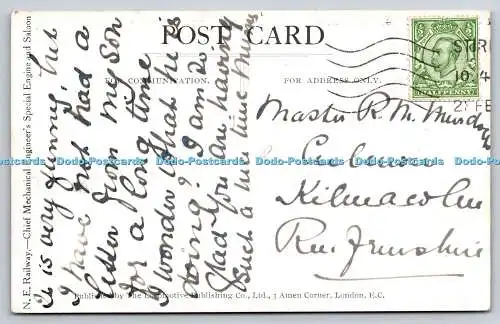 POST CARD
FOR COMMUNICATION.
FOR ADDRESS ONLY.
N. E. Railway.—Chief Mechanical Engineer's Special Engine and Saloon
It is very funny, but
I have not had a
letter from my son
for a long time
I wonder what he is
doing? I am so
glad you are having
such a nice time
Master R. M. Murdoch
Kilmacolm
Renfrewshire
HALFPENNY
STIRL
10.4
21 FE
Dodo-Postcards Dodo-Postcards Dodo-Postcards Dodo-Postcards Dodo-Postcards Dodo-Postcards
Published by The Locomotive Publishing Co., Ltd., 3 Amen Corner, London, E.C.